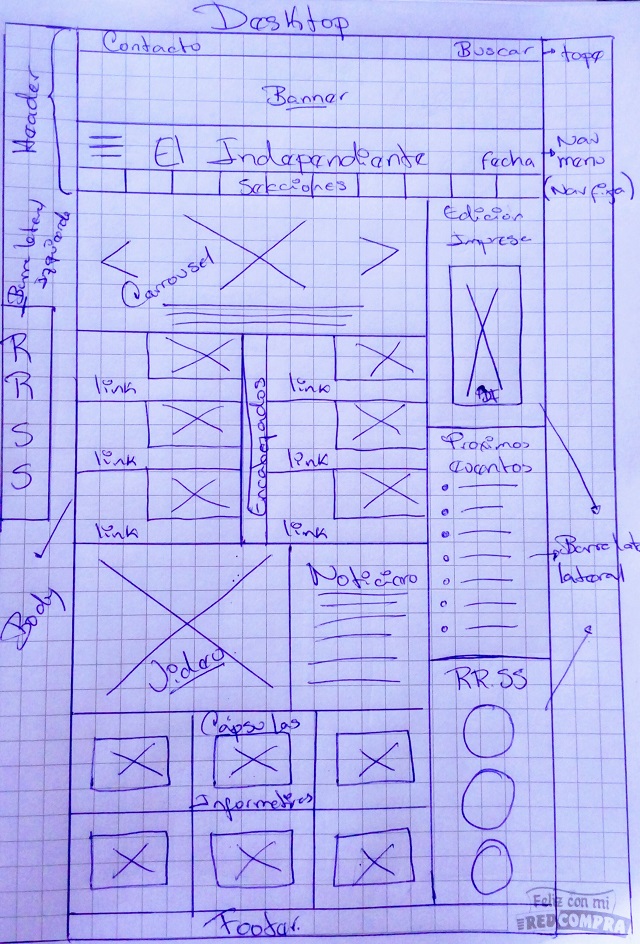 Desktop
Contacto
Buscar
tope
Header
Banner
El Independiente
fecha
Nav menu
(Nav fija)
Secciones
Barra lateral
izquierda
Edicion
Impresa
Carrousel
PDF
R
R
S
S
link
link
link
link
link
link
Encabezados
Proximos
eventos
Barra lat
lateral
Body
Video
Noticiero
RR.SS
Cápsulas
Informativas
Footer.
Feliz con mi
REDCOMPRA